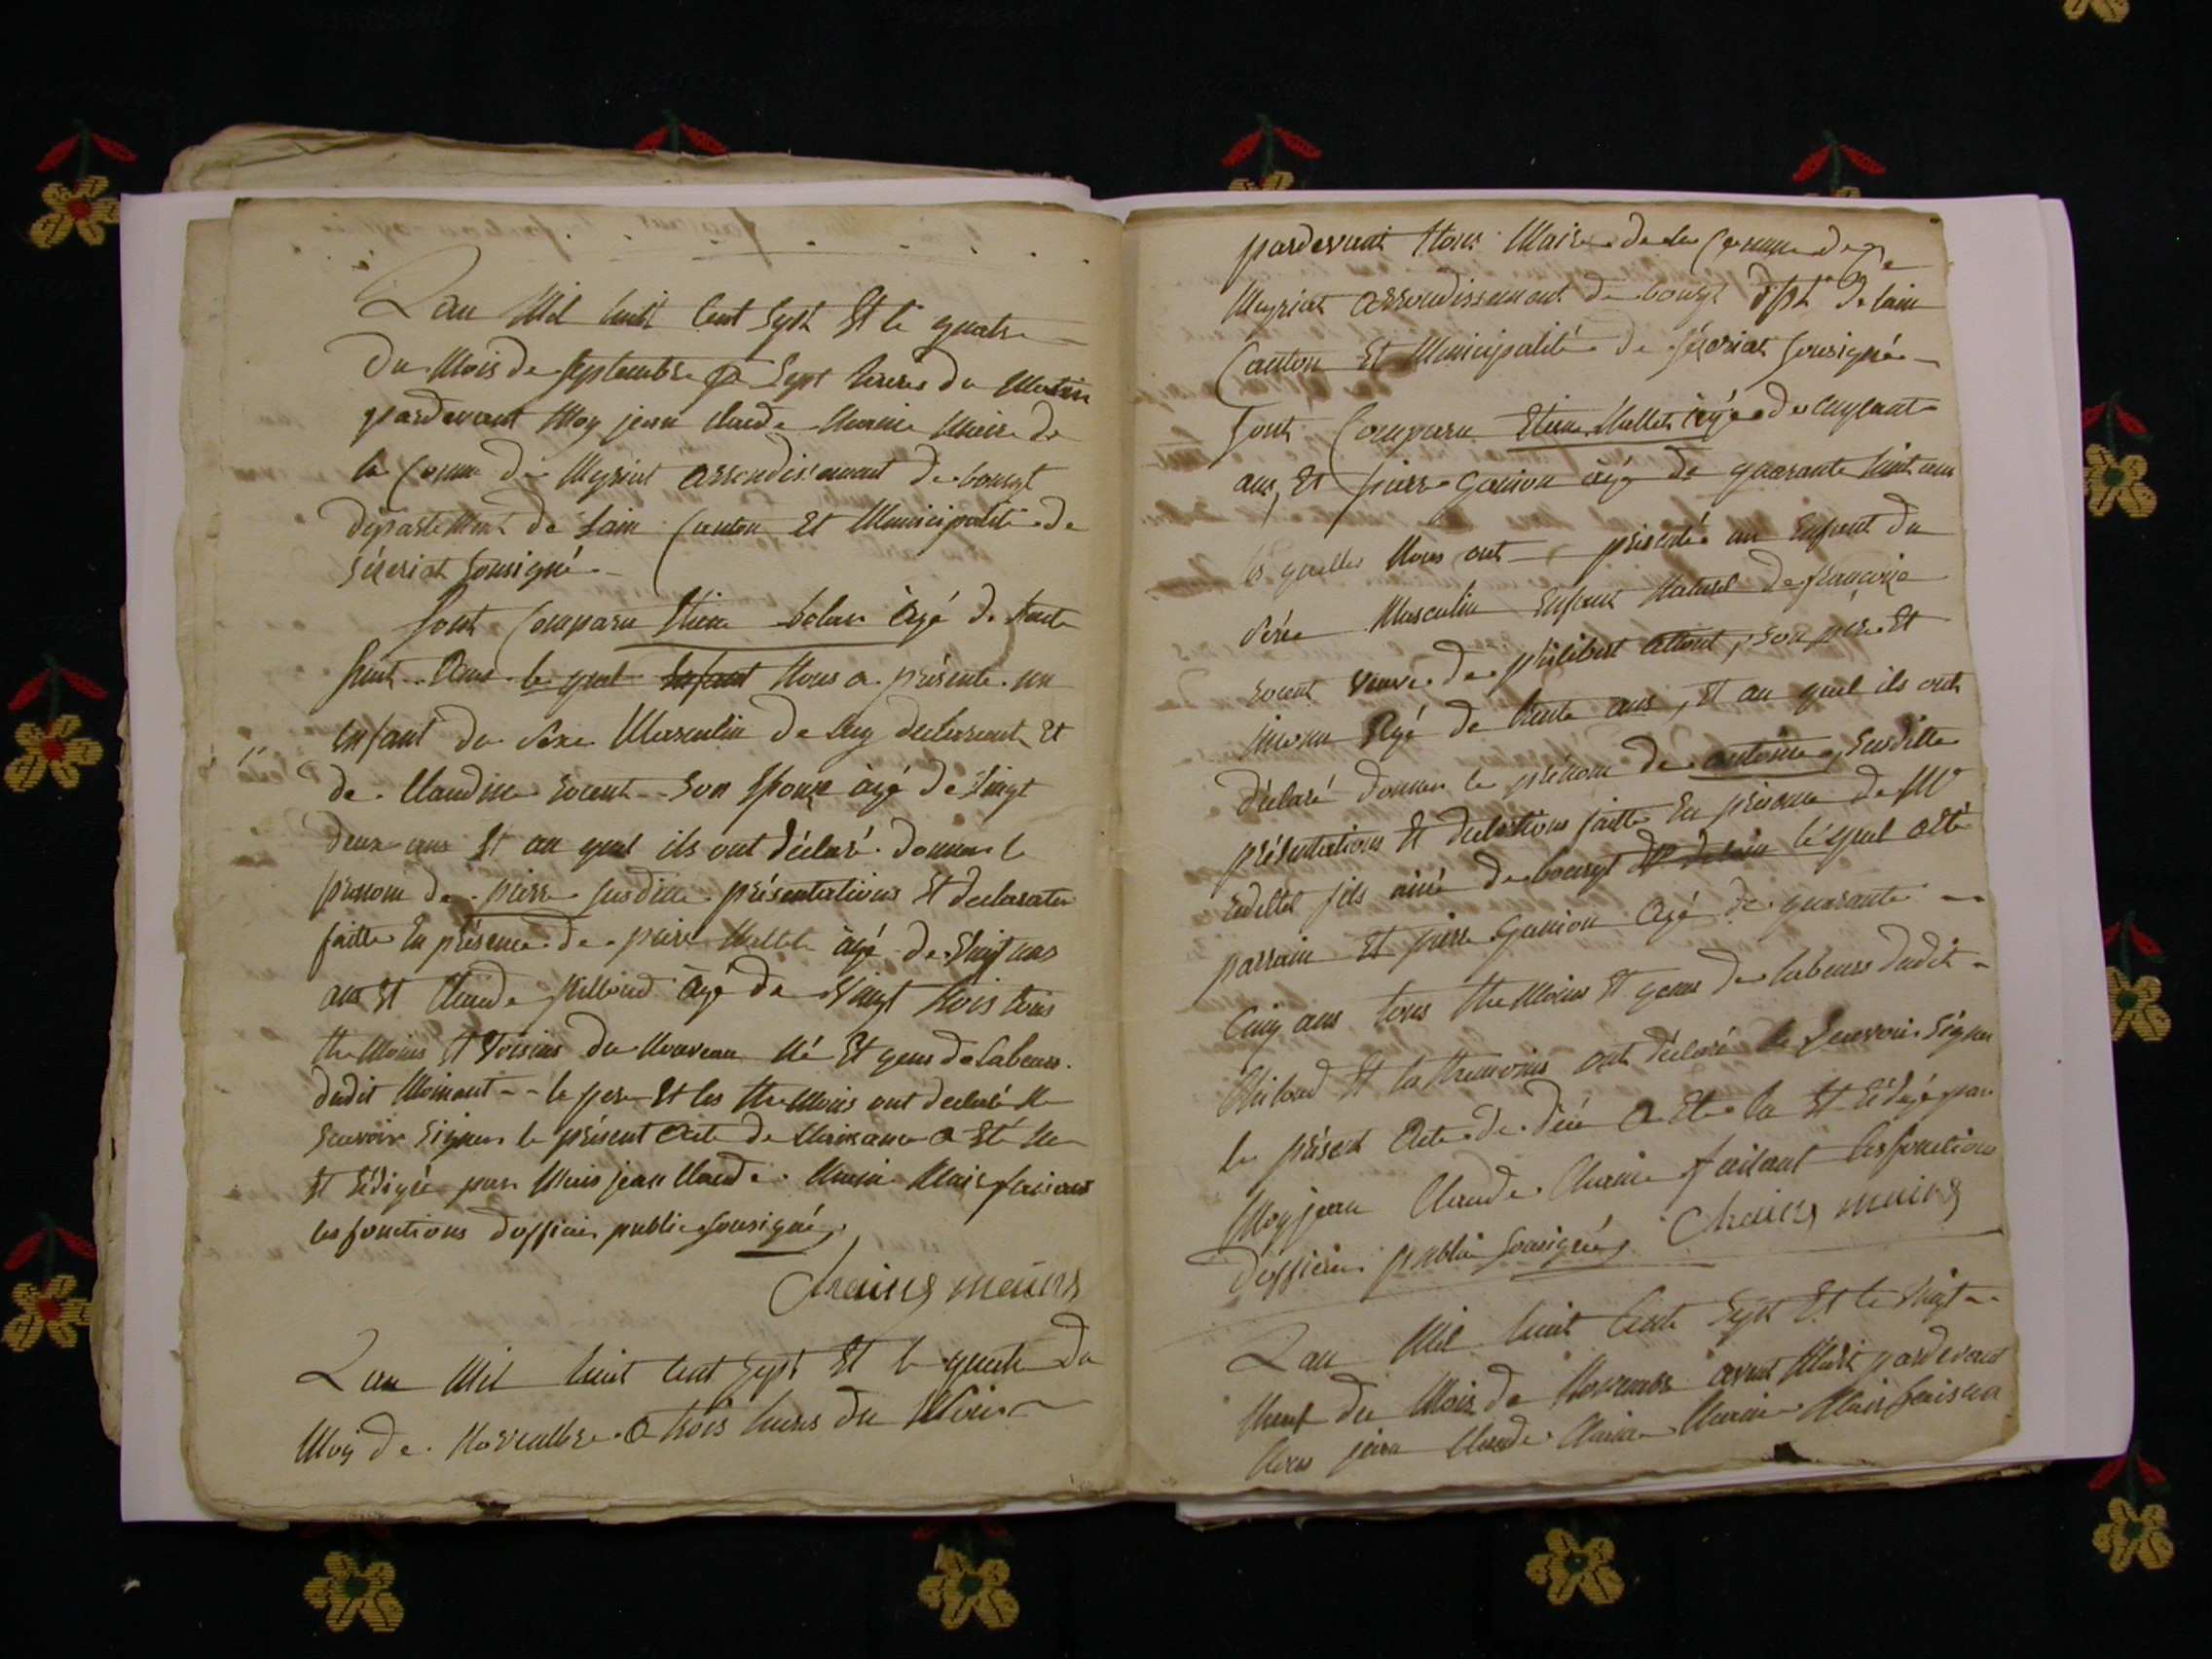 Lan Mil huit Cent Sept Et le quatre
Du Mois de Septembre a Sept heures du Matin
pardevant Moy jean Claude Maire de
la Comm de Meyriat arrondissement de bourgt
département de Lain Canton Et Municipalité de
Sézeriat Sousigné
Sont Comparu Etiene âgé de trente
huit Ans le quel Enfant Nous a présenté un
Enfant du Sexe Masculin de luy declarant Et
de Claudine rocent Son Epouze âgé de Vingt
deux ans Et au quel ils ont déclaré donner le
prenom de pierre susditte présentations Et declarations
faitte En présence de pierre Mallet âgé de
ans Et Claude âgé de Vingt trois tous
themoins Et Voisins du Nouveau Né Et gens de labeurs
dudit le pere Et les themoins ont declaré Ne
Scavoir Signer le présent Acte de Naissance a Eté lu
Et rédigé par Mois jean Claude Maire faisant
les fonctions dofficier public sousigné
maire
Lan Mil huit Cent Sept Et le quatre Du
Mois de Novembre a trois heures du
pardevant Nous Maire de la Commune de
Meyriat arrondissement de bourgt dpt De lain
Canton Et Municipalité de Sézeriat Sousigné
Sont Comparu Etiene Mallet âgé de Cinquante
ans, Et pierre Ganion âgé de quarante huit ans
les quelles Nous ont présenté un Enfant du
Sexe Masculin Enfant Naturel de françoise
rocent Veuve de philibert son père Et
âgé de trente ans, Et au quel ils ont
déclaré donner le prénom de antoine, Susditte
présentations Et declarations faitte En présence de Mr
fils ainé de bourgt de lain lequel a Eté
parrain Et pierre Ganion Agé de quarante
Cinq ans tous themoins Et gens de labeurs dudit
Et les themoins ont déclaré Ne Scavoir Signer
le présent Acte De a Eté lu Et rédigé par
Moy jean Claude faisant les fonctions
dofficier public Sousigné maire
Lan Mil huit Cent Sept Et le Vingt
Neuf du Mois de Novembre avant Midi pardevant
Nous jean Claude Maire faisant